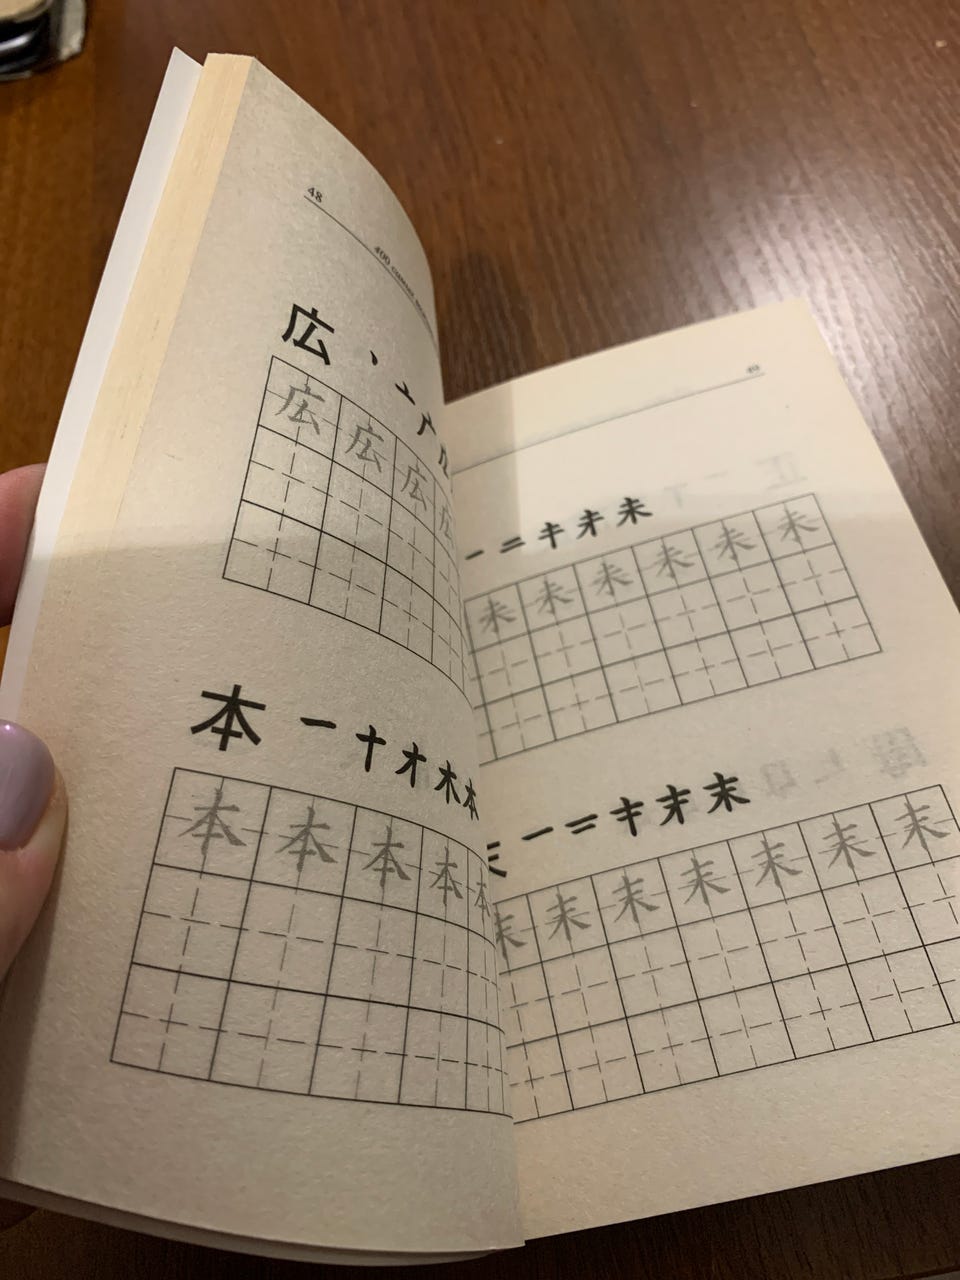 48
400 самых
広 丶 亠 广
広 広 広 広
本 一 十 才 木 本
本 本 本 本 本
49
一 二 キ 才 未
未 未 未 未 未 未
末 一 二 キ 才 末
末 末 末 末 末 末 末